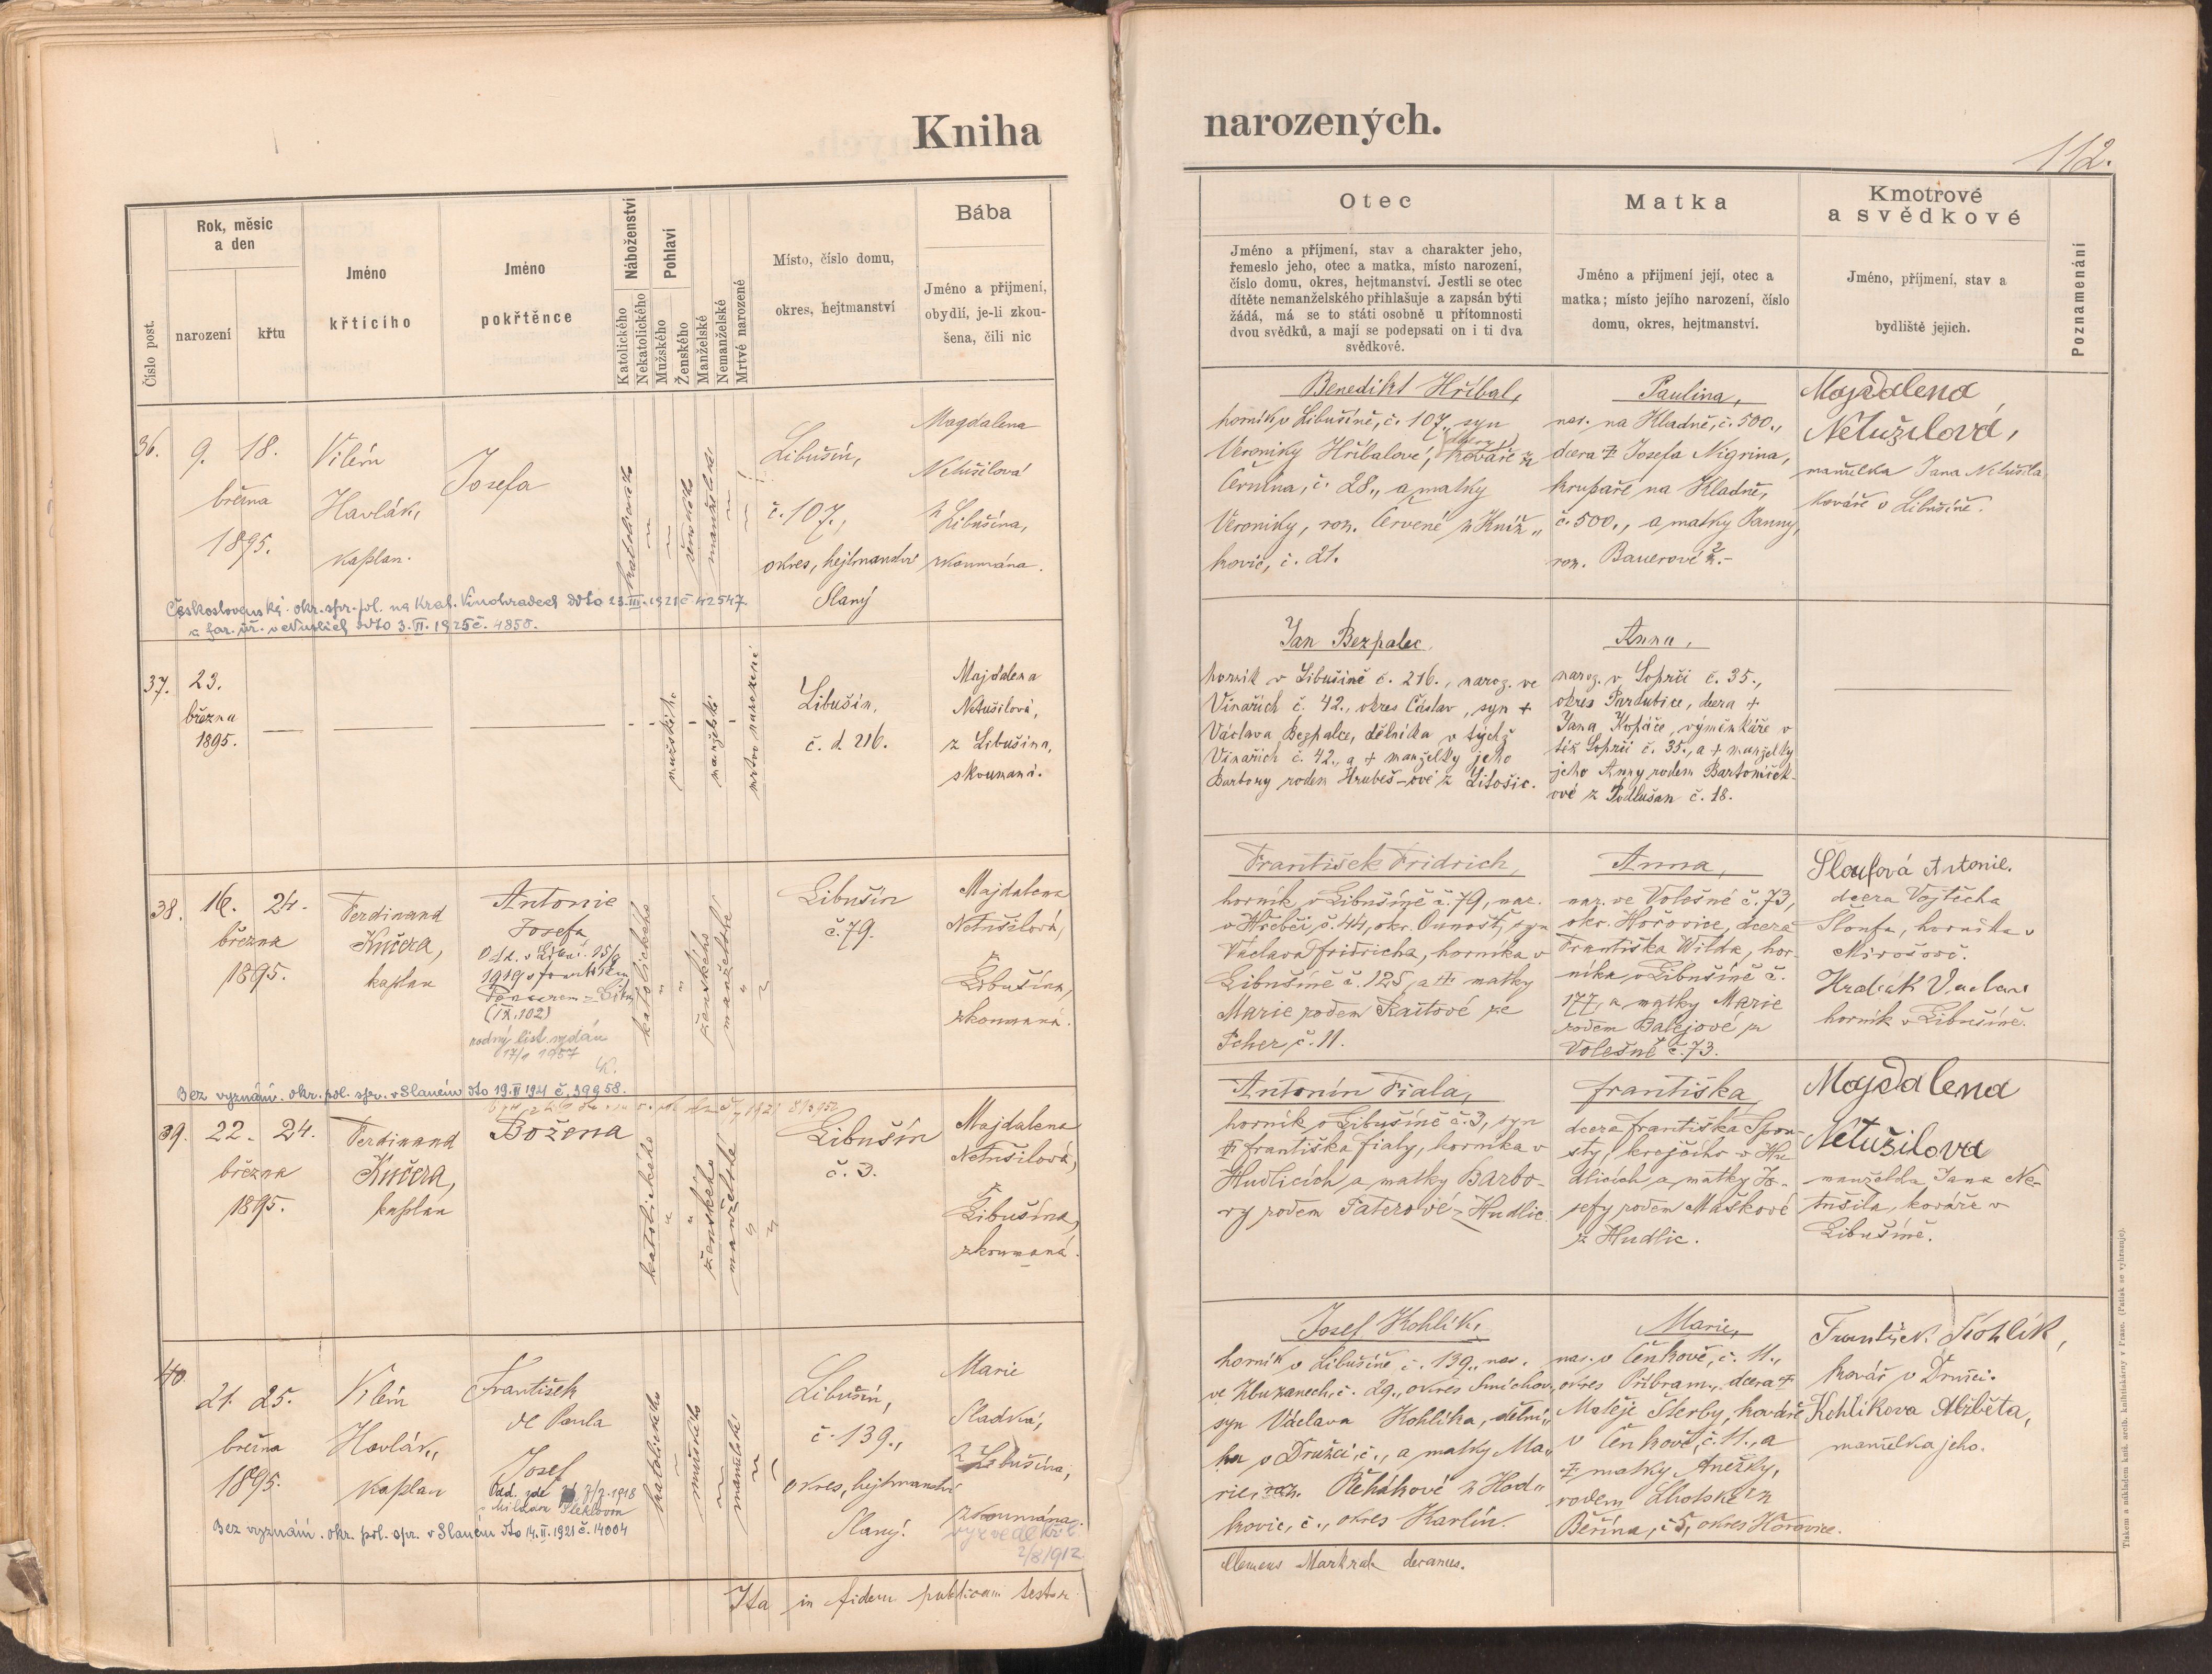 Kniha
narozených.
112.
Číslo post.
Rok, měsíc
a den
narození
křtu
Jméno
křtícího
Jméno
pokřtěnce
Náboženství
Katolického
Nekatolického
Pohlaví
Mužského
Ženského
Manželské
Nemanželské
Mrtvě narozené
Místo, číslo domu,
okres, hejtmanství
Bába
Jméno a příjmení,
obydlí, je-li zkou-
šena, čili nic
Otec
Jméno a příjmení, stav a charakter jeho,
řemeslo jeho, otec a matka, místo narození,
číslo domu, okres, hejtmanství. Jestli se otec
dítěte nemanželského přihlašuje a zapsán býti
žádá, má se to státi osobně u přítomnosti
dvou svědků, a mají se podepsati on i ti dva
svědkové.
Matka
Jméno a příjmení její, otec a
matka; místo jejího narození, číslo
domu, okres, hejtmanství.
Kmotrové
a svědkové
Jméno, příjmení, stav a
bydliště jejich.
Poznamenání
36.
9. 18.
března
1895.
Vilém
Havlák,
kaplan.
Josefa
katolického
ženského
manželské
Libušín,
č. 107.,
okres, hejtmanství
Slaný
Magdalena
Netušilová
z Libušína,
zkoumána.
Československé. okr. spr. pol. na Král. Vinohradech ddto 23.III.1921 č 42547.
a far. úř. v Nuslích ddto 3.VI.1925 č. 4850.
Benedikt Hříbal,
horník v Libušíně, č. 107., syn
Veroniky Hříbalové, dcery kováře z
Černína, č. 28., a matky
Veroniky, roz. Červené z Kníž„
kovic, č. 21.
Paulina,
nar. na Kladně, č. 500.,
dcera ‡ Josefa Nigrina,
krupaře na Kladně,
č. 500., a matky Panny,
roz. Bauerové z.-
Majdalena
Netužilová,
manželka Jana Netušila
kováře v Libušíně.
37.
23.
března
1895.
mužského
manželské
mrtvo narozené
Libušín,
č. d. 216.
Majdalena
Netušilová,
z Libušína,
skoumaná.
Jan Bezpalec,
horník v Libušíně č. 216., naroz. ve
Vinařích č. 42., okres Čáslav, syn +
Václava Bezpalce, dělníka v týchž
Vinařích č. 42., a + manželky jeho
Barbory rodem Hrubeš-ové z Litošic.
Anna,
naroz. v Sopřči č. 35.,
okres Pardubice, dcera +
Jana Kopáče, výměnkáře v
též Sopřči č. 35., a + manželky
jeho Anny rodem Bartoníčk-
ové z Podlušan č. 18.
38.
16. 24.
března
1895.
Ferdinand
Kučera,
kaplan
Antonie
Josefa
Odd. v Libuš. 15/9
1919 s Františkem
(IX.102)
rodný list vydán
17/1 1957
katolického
ženského
manželské
Libušín
č. 79.
Majdalena
Netušilová,
z
Libušína,
zkoumaná.
Bez vyznání. okr. pol. spr. v Slaném dto 19.II 1921 č. 39958.
František Fridrich,
horník v Libušíně č. 79, nar.
v Hřebči č. 44, okr. Unhošť, syn
Václava Fridricha, horníka v
Libušíně č. 125, a ‡ matky
Marie rodem Raitové ze
Pcher, č. 11.
Anna,
nar. ve Volešné č. 73,
okr. Hořovice, dcera
Františka Wilda, hor-
níka v Libušíně č.
177, a matky Marie
rodem Balejové z
Volešné č. 73.
Sloufová Antonie.
dcera Vojtěcha
Sloufa, horníka v
Mirošově.
Hradcák Václav
horník v Libušíně.
39.
22. 24.
března
1895.
Ferdinand
Kučera,
kaplan
Božena
katolického
ženského
manželské
Libušín
č. 3.
Majdalena
Netušilová,
z
Libušína,
zkoumaná.
Antonín Fiala,
horník v Libušíně č. 3, syn
‡ Františka Fialy, horníka v
Hudlicích a matky Barbo-
ry rodem Faterové z Hudlic.
Františka,
dcera Františka Spou-
sty, krejčího v Hu-
dlicích a matky Jo-
sefy rodem Maškové
z Hudlic.
Majdalena
Netušilova
manželka Jana Ne-
tušila, kováře v
Libušíně.
40.
21. 25.
března
1895.
Vilém
Havlák,
kaplan
František
de Paula
Josef
Odd. zde 7/7.1918
s Miladou Šteklovou
katolického
mužského
manželské
Libušín,
č. 139.,
okres, hejtmanství
Slaný.
Marie
Sladká,
z Libušína,
zkoumána.
2/8/912
Bez vyznání. okr. pol. spr. v Slaném dto 14.II.1921 č. 14004
Josef Kohlík,
horník v Libušíně č. 139., nar.
ve Kluzanech, č. 29., okres Smíchov,
syn Václava Kohlíka, dělní„
ka v Družci, č., a matky Ma„
rie, roz. Řehákové z Hod„
kovic, č., okres Karlín.
Marie,
nar. v Čenkově, č. 11.,
okres Příbram., dcera ‡
Matěje Šterby, kováře
v Čenkově, č. 11., a
‡ matky Anežky,
rodem Lhotské z
Běřína, č 5, okres Hořovice.
František Kohlík,
kovář v Družci.
Kohlíkova Alžběta,
manželka jeho.
Ita in fidem publicam testor
Clemens Markrab decanus.
Tiskem a nákladem kníž. arcib. knihtiskárny v Praze. (Patisk se vyhrazuje).